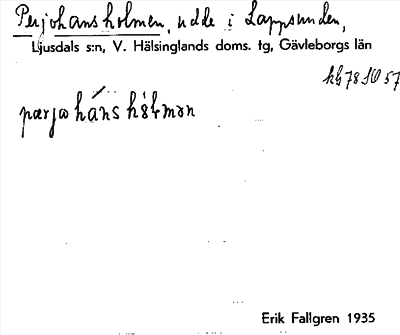 Perjohansholmen, udde i Lappsunden,
Ljusdals s:n, V. Hälsinglands doms. tg, Gävleborgs län
pærjω hánshòłmən
Erik Fallgren 1935